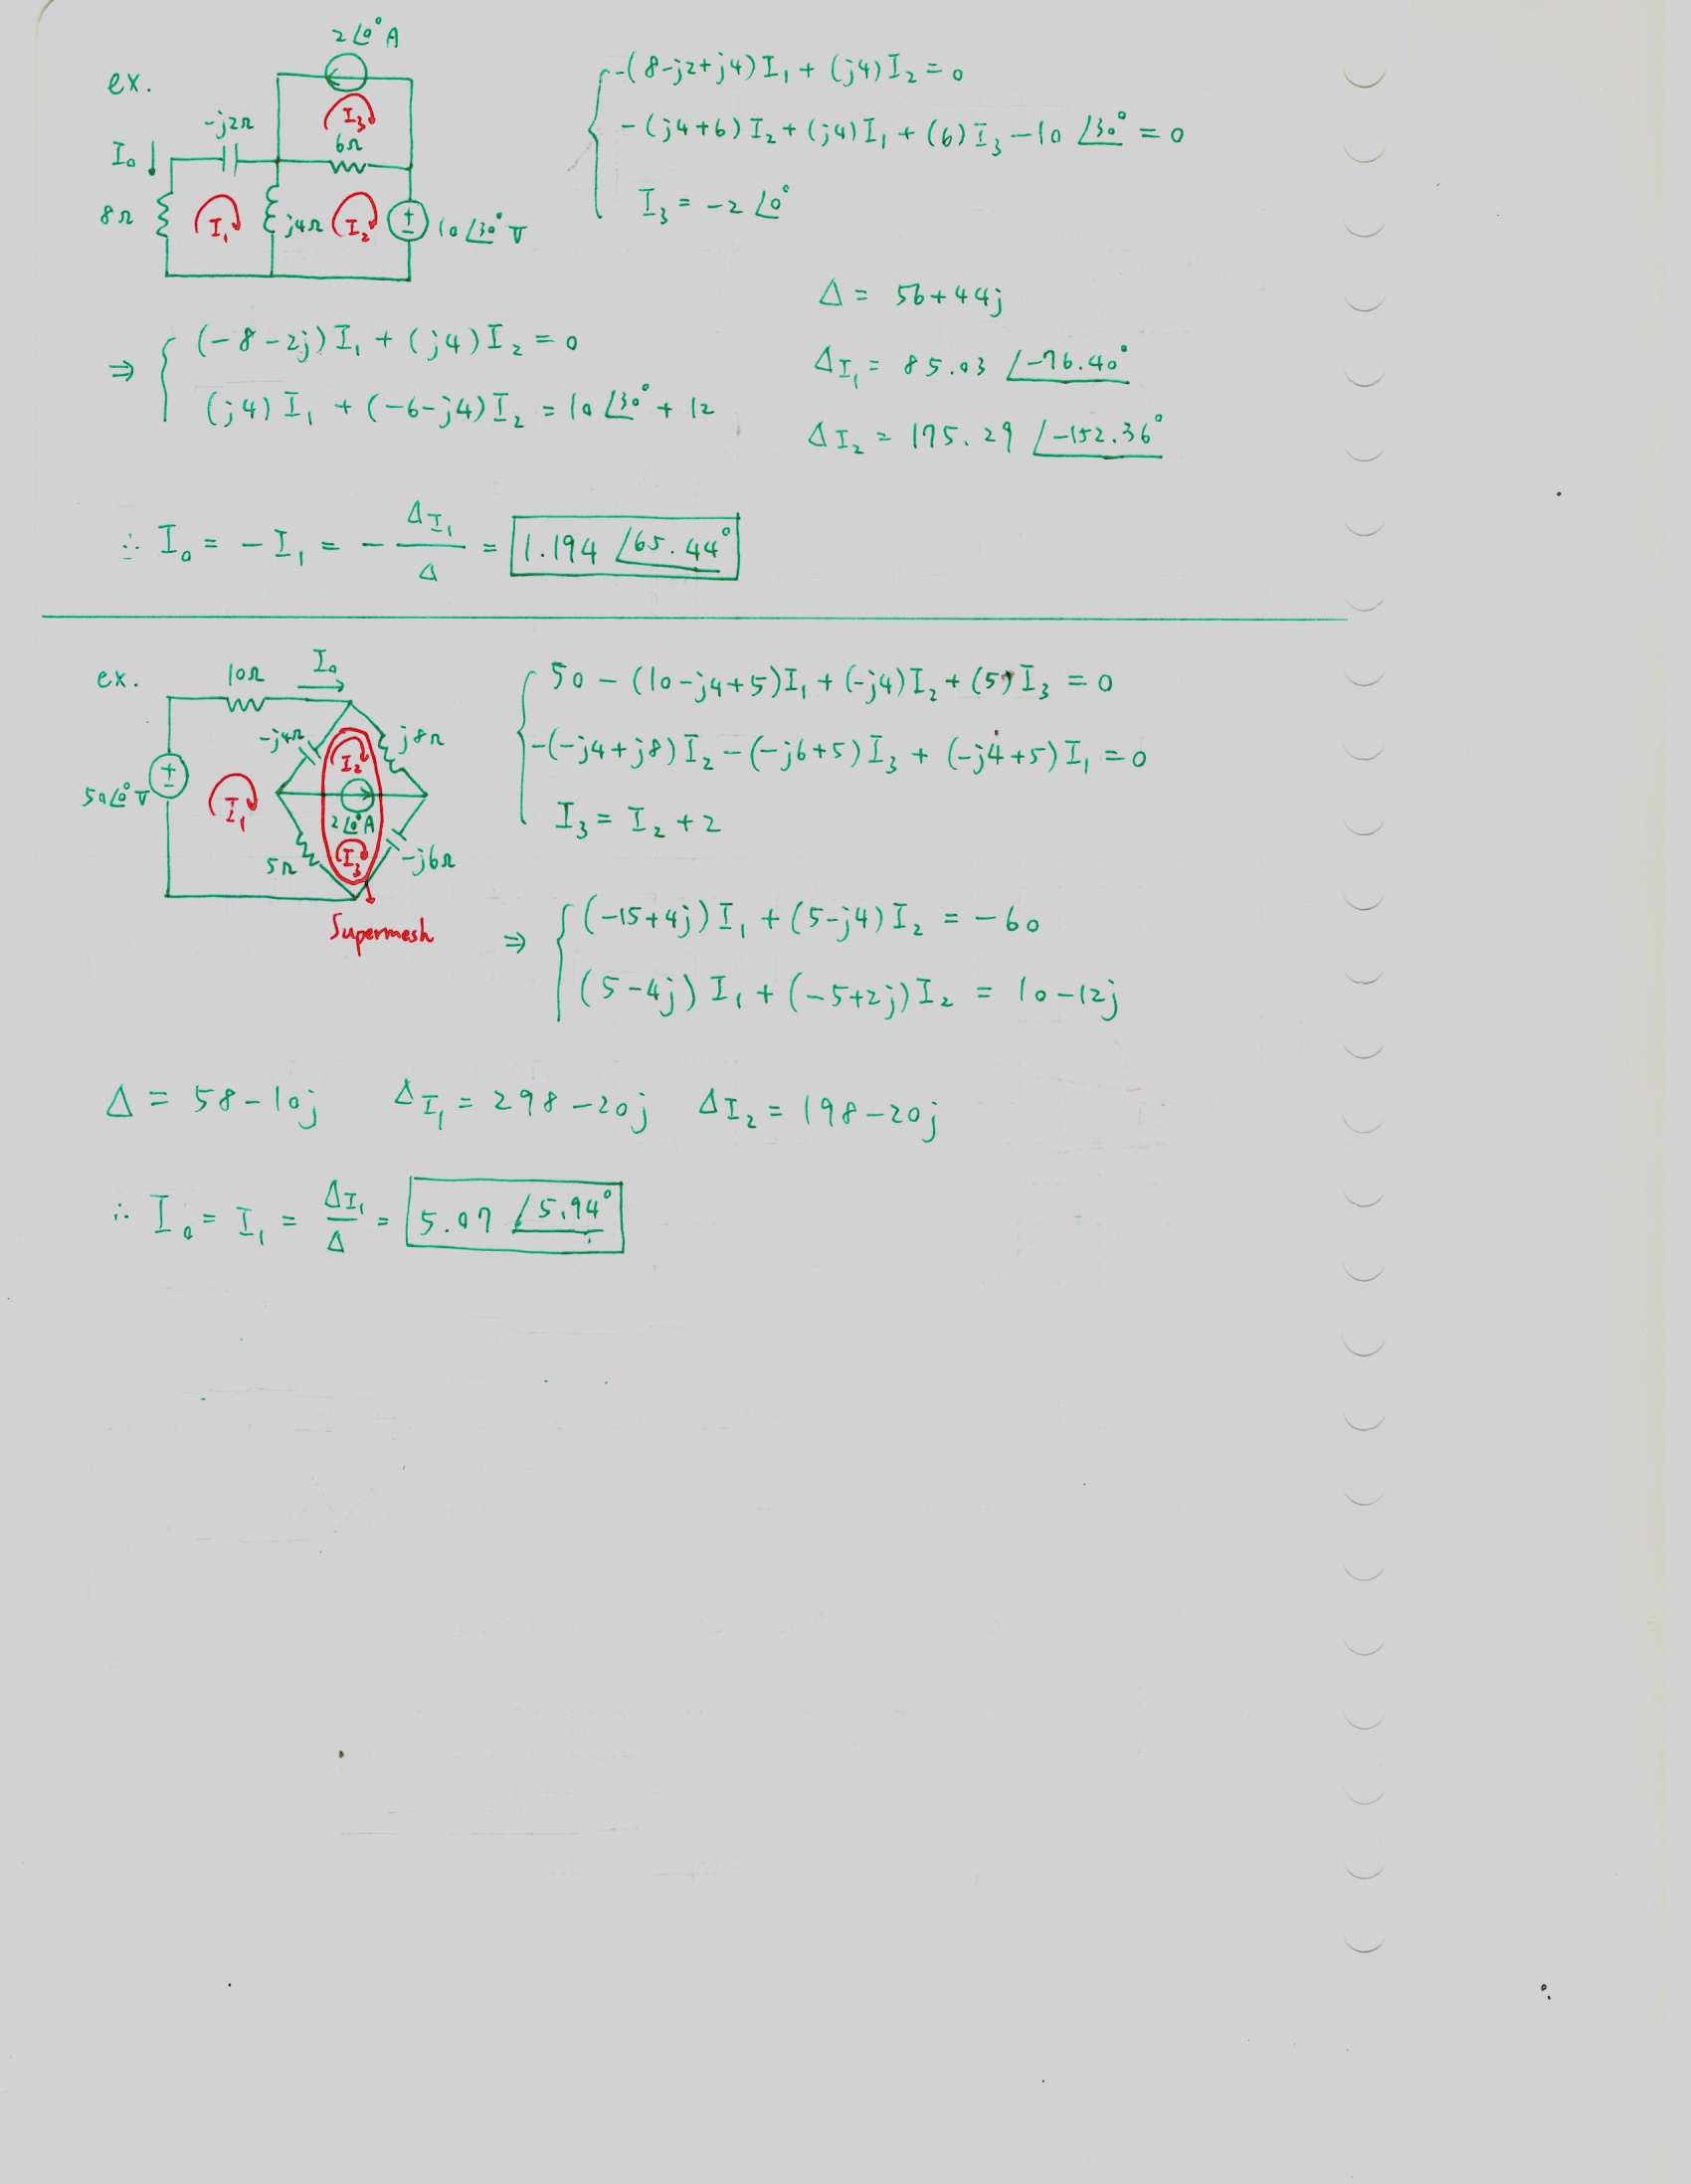 ex.
2∠0° A
I₃
-j2Ω
6Ω
I₀
8Ω
I₁
j4Ω
I₂
+
-
10∠30° V
-(8-j2+j4)I₁ + (j4)I₂ = 0
-(j4+6)I₂ + (j4)I₁ + (6)I₃ - 10∠30° = 0
I₃ = -2∠0°
⇒ (-8-2j)I₁ + (j4)I₂ = 0
(j4)I₁ + (-6-j4)I₂ = 10∠30° + 12
Δ = 56+44j
ΔI₁ = 85.03 ∠-76.40°
ΔI₂ = 175.29 ∠-152.36°
∴ I₀ = -I₁ = - ΔI₁/Δ = 1.194 ∠65.44°
ex.
10Ω
I₀
-j4Ω
j8Ω
I₂
50∠0° V
+
-
I₁
2∠0° A
5Ω
I₃
-j6Ω
Supermesh
50 - (10-j4+5)I₁ + (-j4)I₂ + (5)I₃ = 0
-(-j4+j8)I₂ - (-j6+5)I₃ + (-j4+5)I₁ = 0
I₃ = I₂ + 2
⇒ (-15+4j)I₁ + (5-j4)I₂ = -60
(5-4j)I₁ + (-5+2j)I₂ = 10-12j
Δ = 58-10j ΔI₁ = 298-20j ΔI₂ = 198-20j
∴ I₀ = I₁ = ΔI₁/Δ = 5.07 ∠5.94°